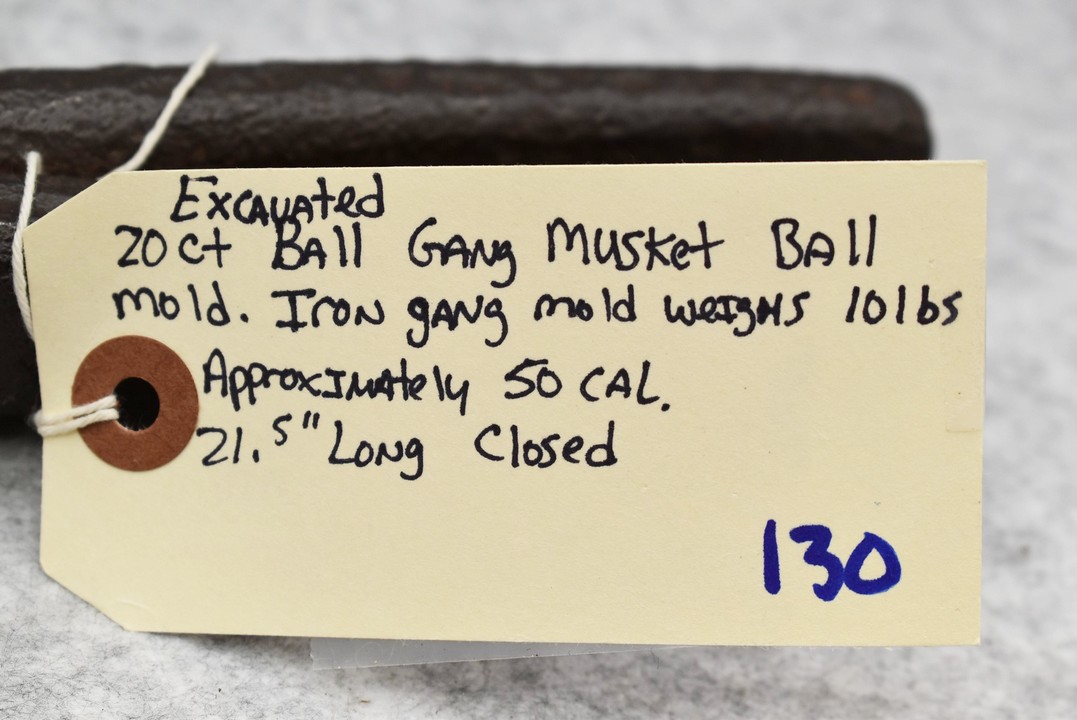 Excavated
20ct Ball Gang Musket Ball
mold. Iron gang mold weighs 10lbs
Approximately 50 CAL.
21.5" Long Closed
130